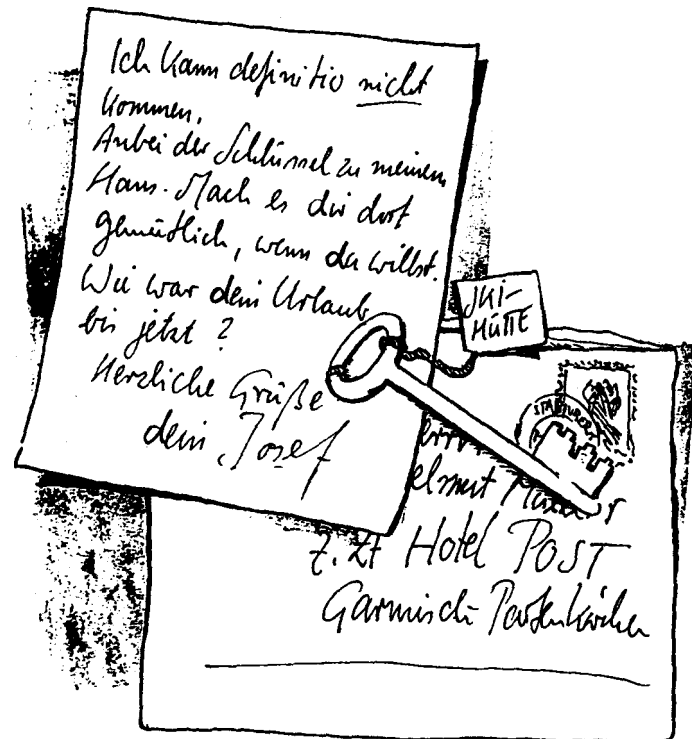 Ich kann definitiv nicht
kommen.
Anbei der Schlüssel zu meinem
Haus. Mach es dir dort
gemütlich, wenn du willst.
Wie war dein Urlaub
bis jetzt?
Herzliche Grüße
dein Josef
SKI-
HÜTTE
z. Zt Hotel POST
Garmisch Partenkirchen